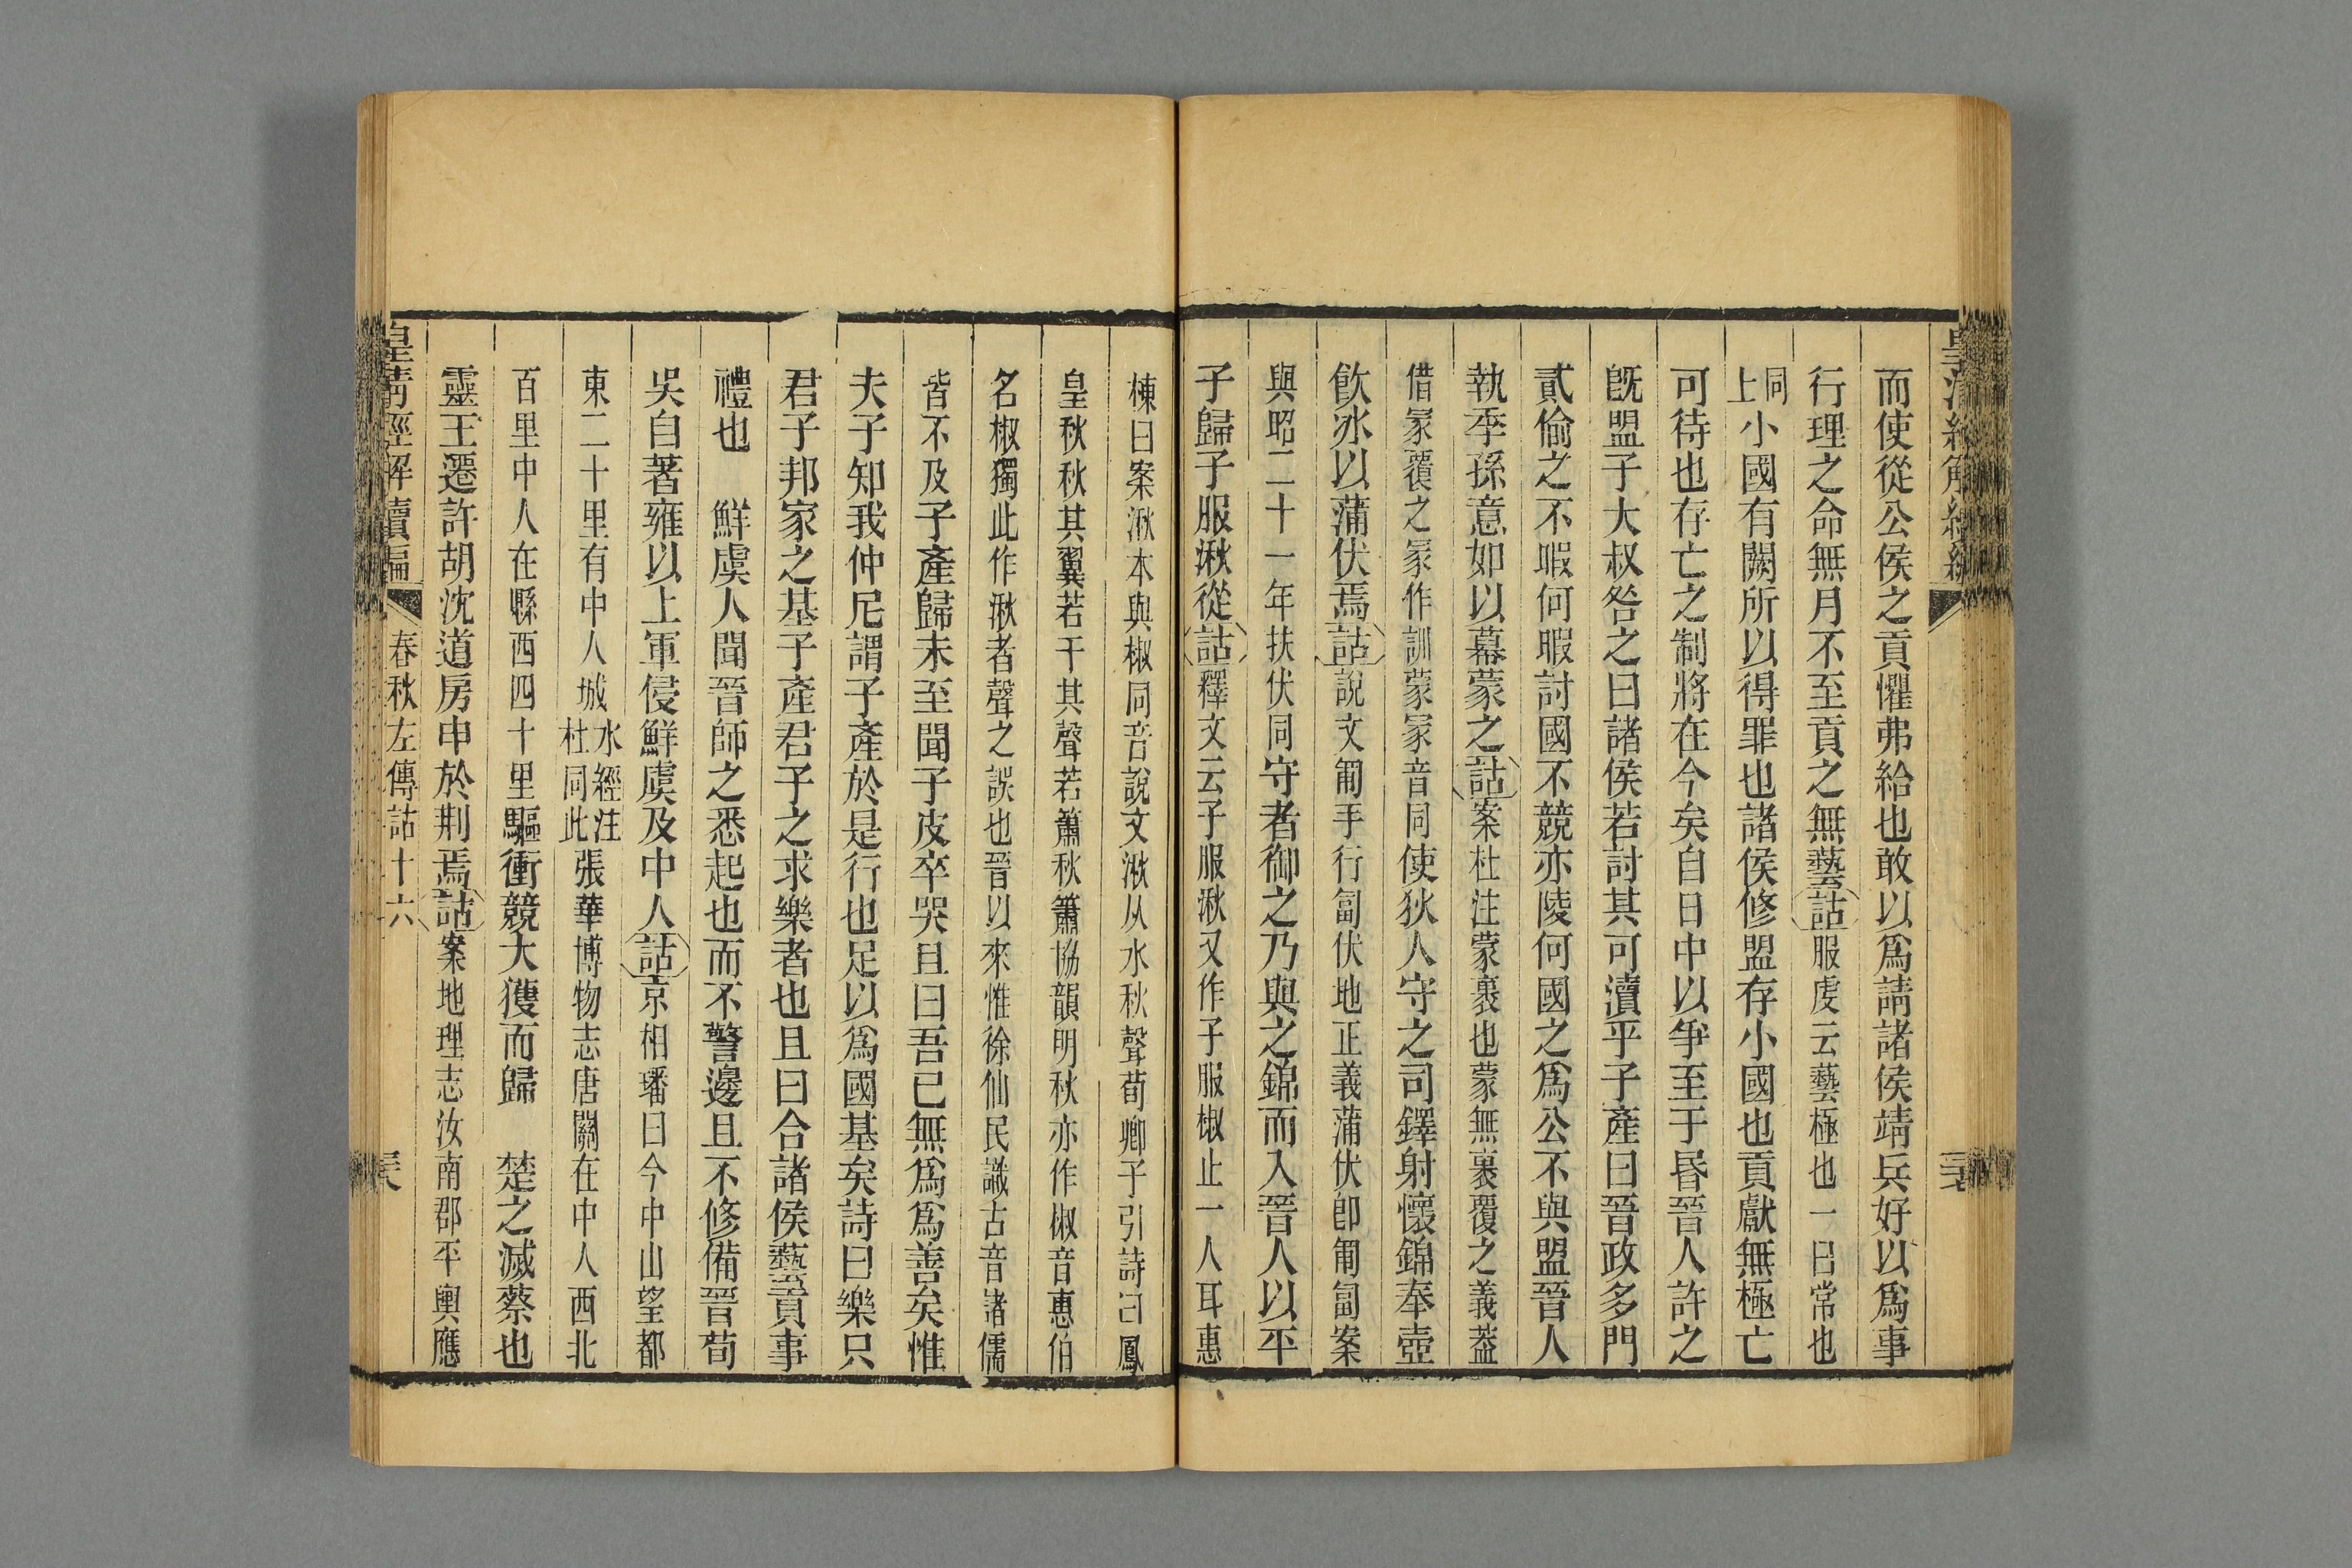 而使從公侯之貢懼弗給也敢以爲請諸侯靖兵好以爲事
行理之命無月不至貢之無藝詁服虔云藝極也一曰常也
同上小國有闕所以得罪也諸侯修盟存小國也貢獻無極亡
可待也存亡之制將在今矣自日中以爭至于昏晉人許之
旣盟子大叔咎之曰諸侯若討其可瀆乎子產曰晉政多門
貳偷之不暇何暇討國不競亦陵何國之爲公不與盟晉人
執季孫意如以幕蒙之詁案杜注蒙裹也蒙無裹覆之義葢
借冡覆之冡作訓蒙冡音同使狄人守之司鐸射懷錦奉壺
飮冰以蒲伏焉詁說文匍手行匐伏地正義蒲伏卽匍匐案
與昭二十一年扶伏同守者御之乃與之錦而入晉人以平
子歸子服湫從詁釋文云子服湫又作子服椒止一人耳惠
棟曰案湫本與椒同音說文湫从水秋聲荀卿子引詩曰鳳
皇秋秋其翼若干其聲若簫秋簫協韻明秋亦作椒音惠伯
名椒獨此作湫者聲之誤也晉以來惟徐仙民識古音諸儒
皆不及子產歸未至聞子皮卒哭且曰吾已無爲爲善矣惟
夫子知我仲尼謂子產於是行也足以爲國基矣詩曰樂只
君子邦家之基子產君子之求樂者也且曰合諸侯藝貢事
禮也 鮮虞人聞晉師之悉起也而不警邊且不修備晉荀
吳自著雍以上軍侵鮮虞及中人詁京相璠曰今中山望都
東二十里有中人城水經注杜同此張華博物志唐關在中人西北
百里中人在縣西四十里驅衝競大獲而歸 楚之滅蔡也
靈王遷許胡沈道房申於荆焉詁案地理志汝南郡平輿應
皇清經解續編 春秋左傳詁十六